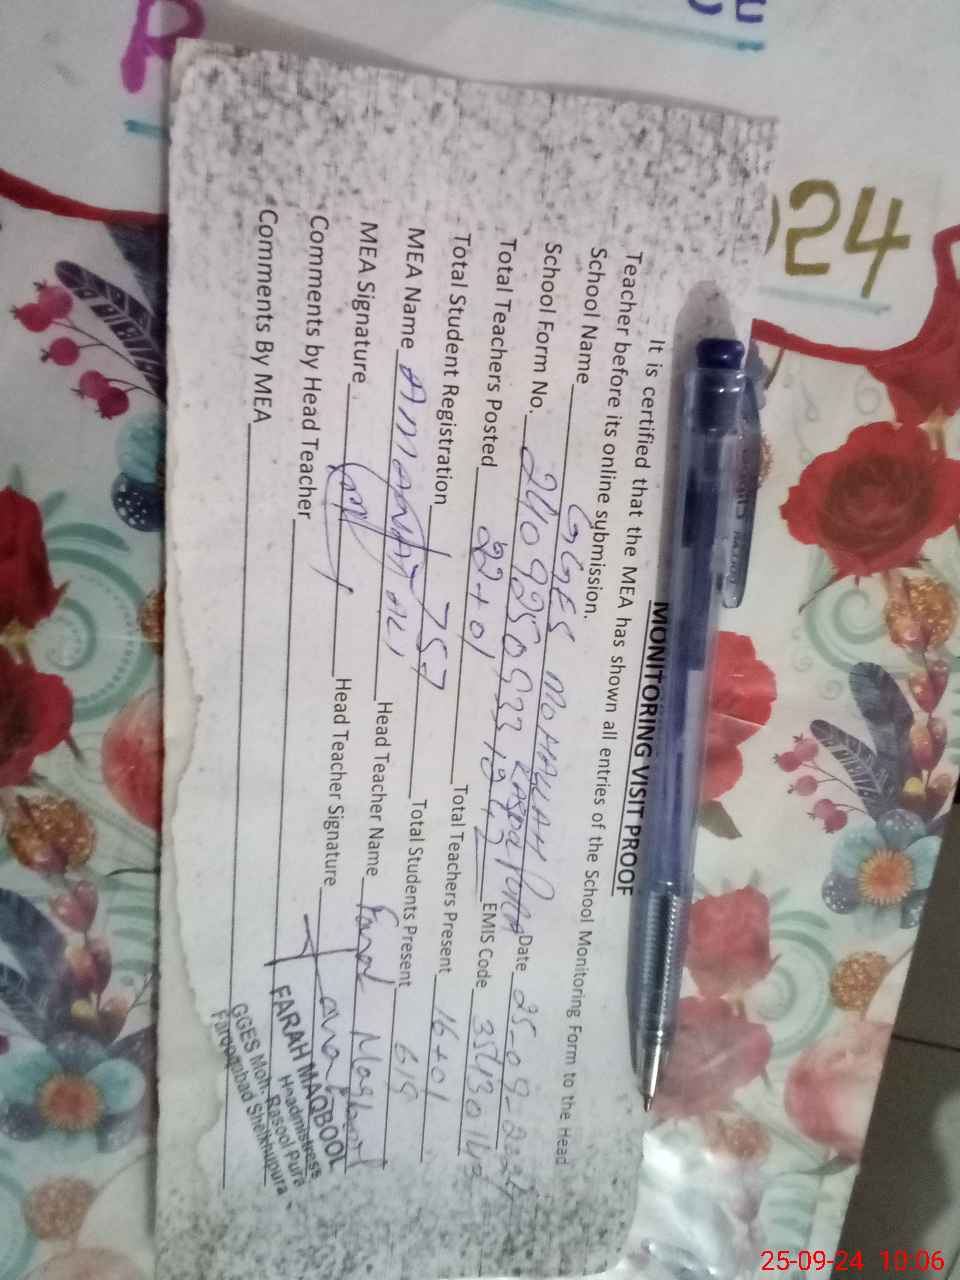 MONITORING VISIT PROOF
It is certified that the MEA has shown all entries of the School Monitoring Form to the Head
Teacher before its online submission.
School Name GGES MOHALLAH RASOOL PURA Date 25-09-2024
School Form No. EMIS Code
Total Teachers Posted 22+01 Total Teachers Present 16+01
Total Student Registration 757 Total Students Present 619
MEA Name Head Teacher Name Farah Maqbool
MEA Signature Head Teacher Signature Farah
Comments by Head Teacher
Comments By MEA
FARAH MAQBOOL
Headmistress
GGES Moh: Rasool Pura
Farooqabad Sheikhupura
24
25-09-24 10:06